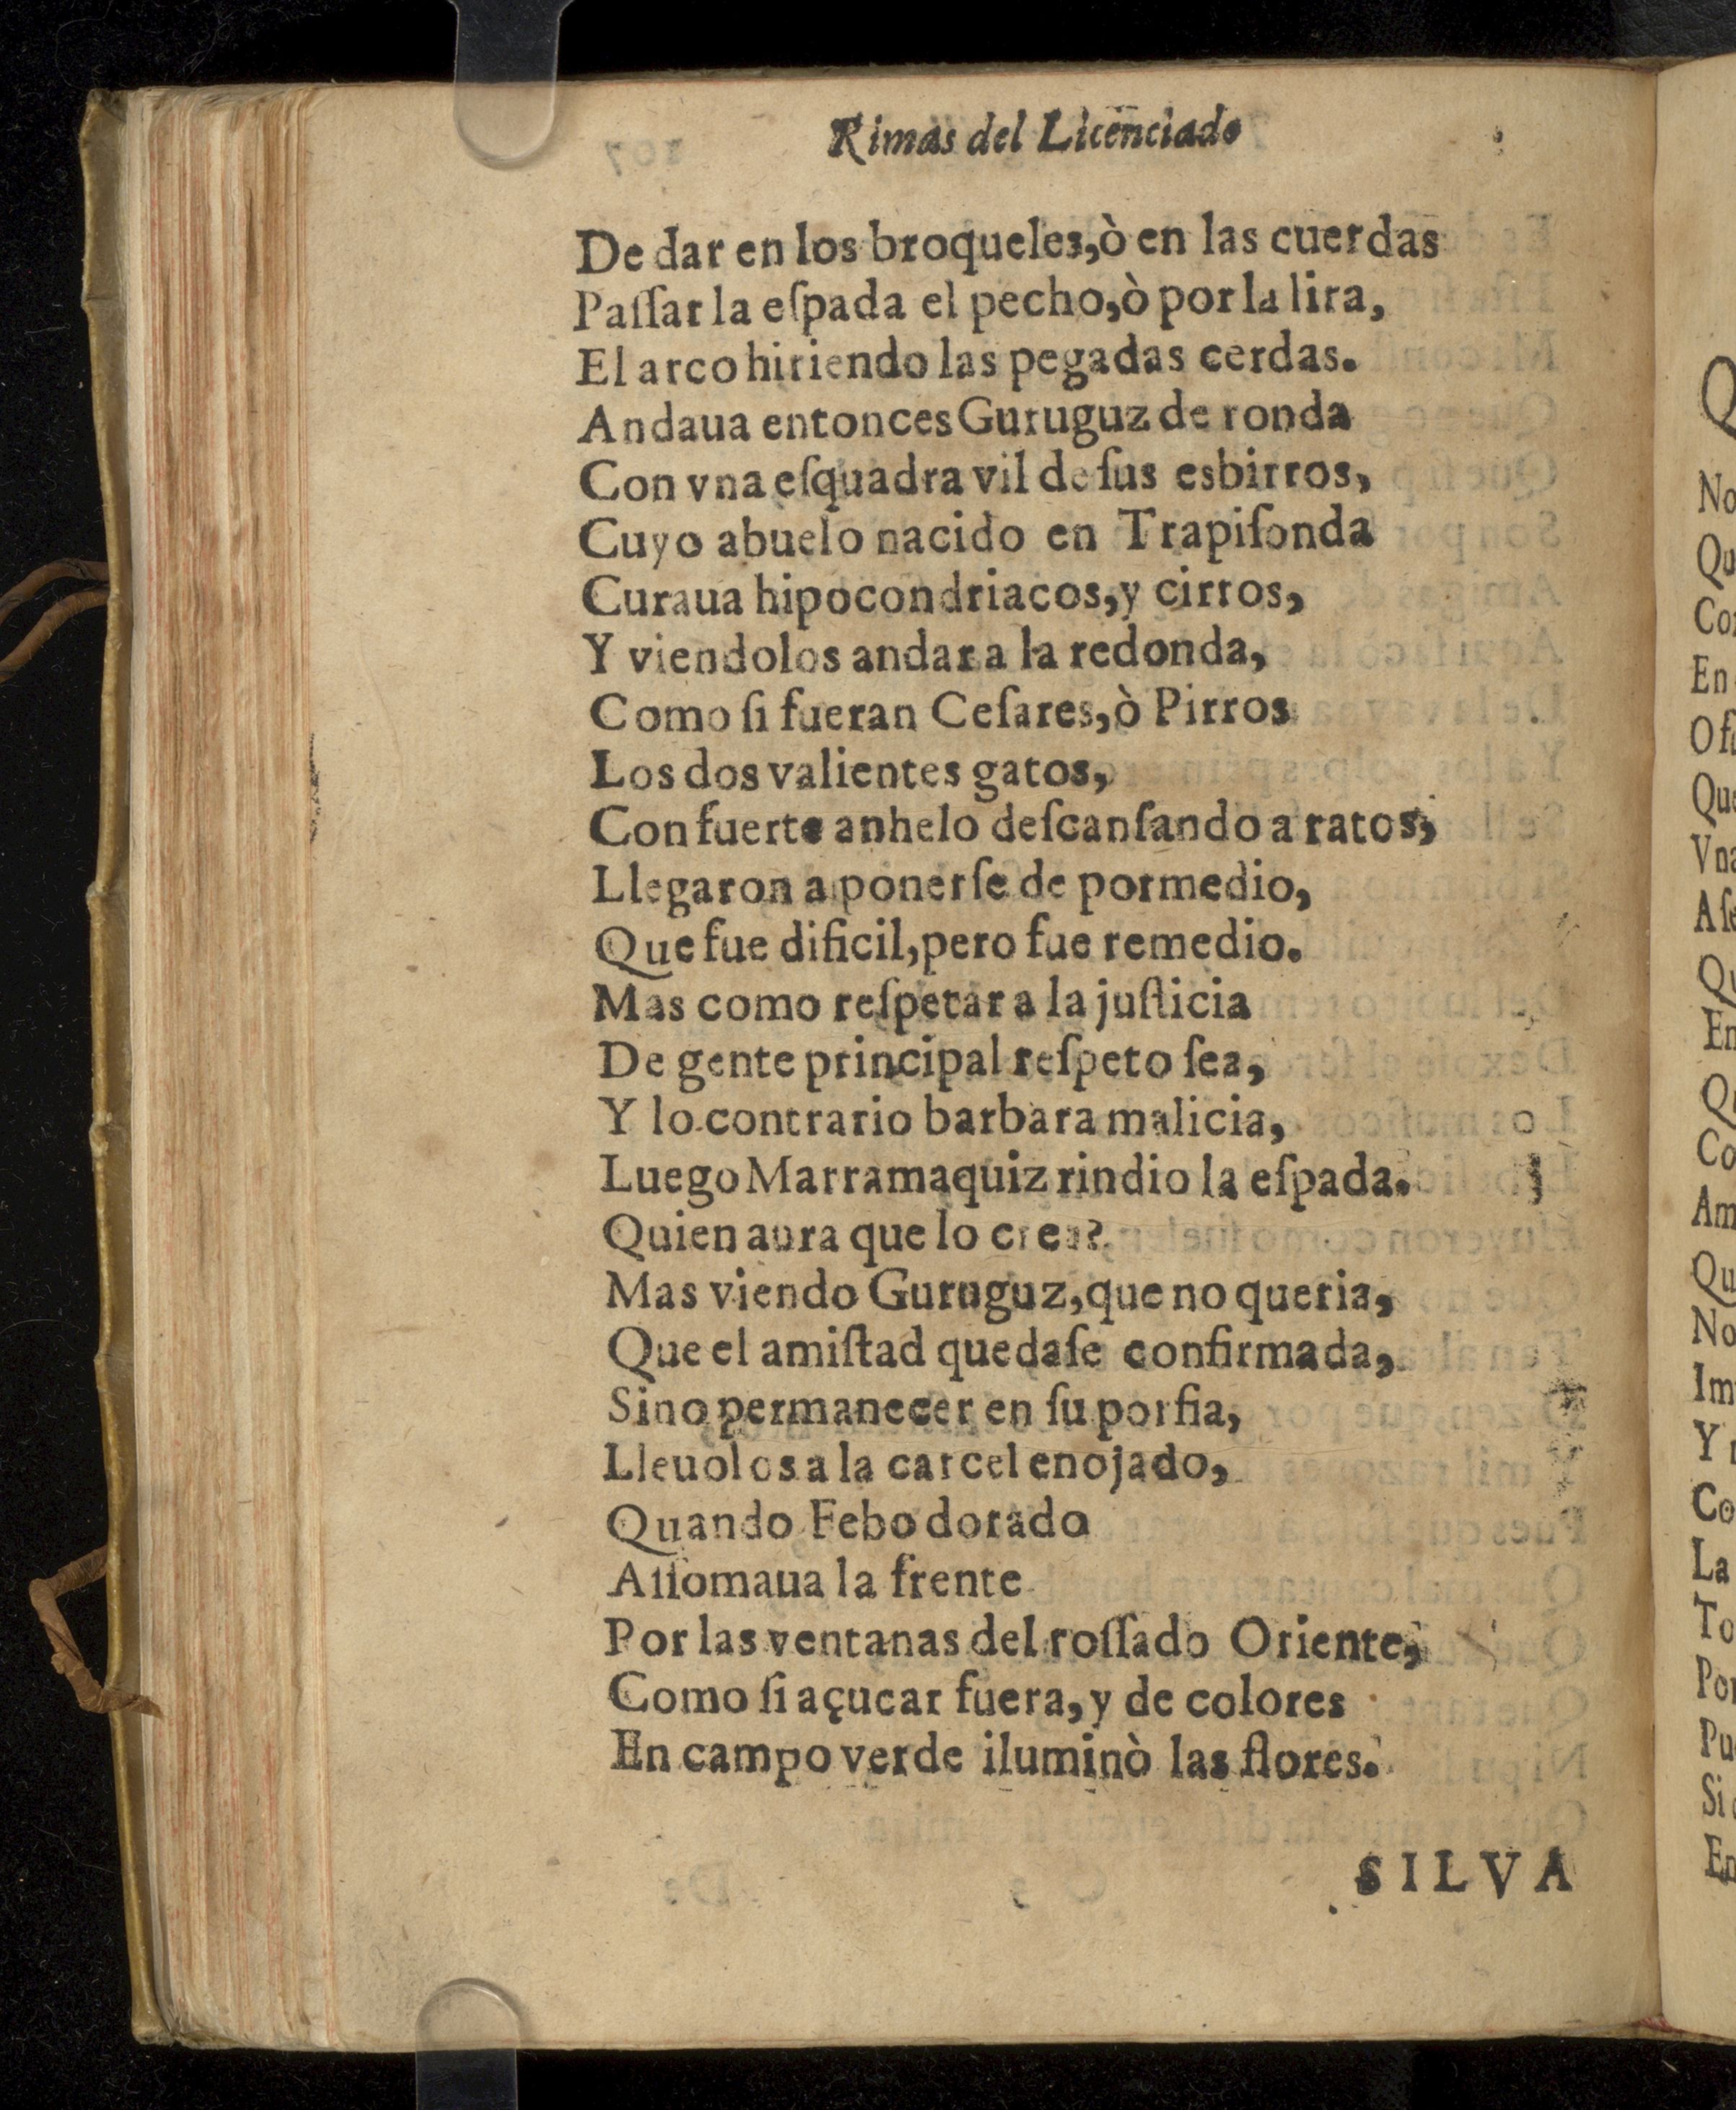 Rimas del Licenciado
De dar en los broqueles,ò en las cuerdas
Paſſar la eſpada el pecho,ò por la lira,
El arco hiriendo las pegadas cerdas.
Andaua entonces Guruguz de ronda
Con vna eſquadra vil de ſus esbirros,
Cuyo abuelo nacido en Trapiſonda
Curaua hipocondriacos,y cirros,
Y viendolos andar a la redonda,
Como ſi fueran Ceſares,ò Pirros
Los dos valientes gatos,
Con fuerte anhelo deſcanſando a ratos,
Llegaron a ponerſe de pormedio,
Que fue dificil,pero fue remedio.
Mas como reſpetar a la juſticia
De gente principal reſpeto ſea,
Y lo contrario barbara malicia,
Luego Marramaquiz rindio la eſpada.
Quien aura que lo crea?
Mas viendo Guruguz,que no queria,
Que el amiſtad quedaſe confirmada,
Sino permanecer en ſu porfia,
Lleuolos a la carcel enojado,
Quando Febo dorado
Aſſomaua la frente
Por las ventanas del roſſado Oriente,
Como ſi açucar fuera,y de colores
En campo verde iluminò las flores.
SILVA
No
Qu
Co
En
Oſi
Que
Vna
Aſe
Qu
En
Qu
Co
Am
Qu
No
Im
Y
Co
La
To
Por
Pu
Si
En